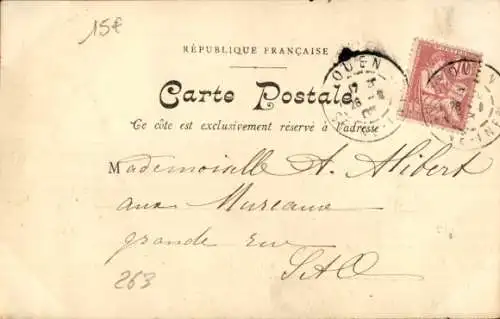 15€
RÉPUBLIQUE FRANÇAISE
Carte Postale
Ce côté est exclusivement réservé à l'adresse
OUEN
OUEN
Mademoiselle A. Alibert
aux Mureaux
grande rue
S&O
263